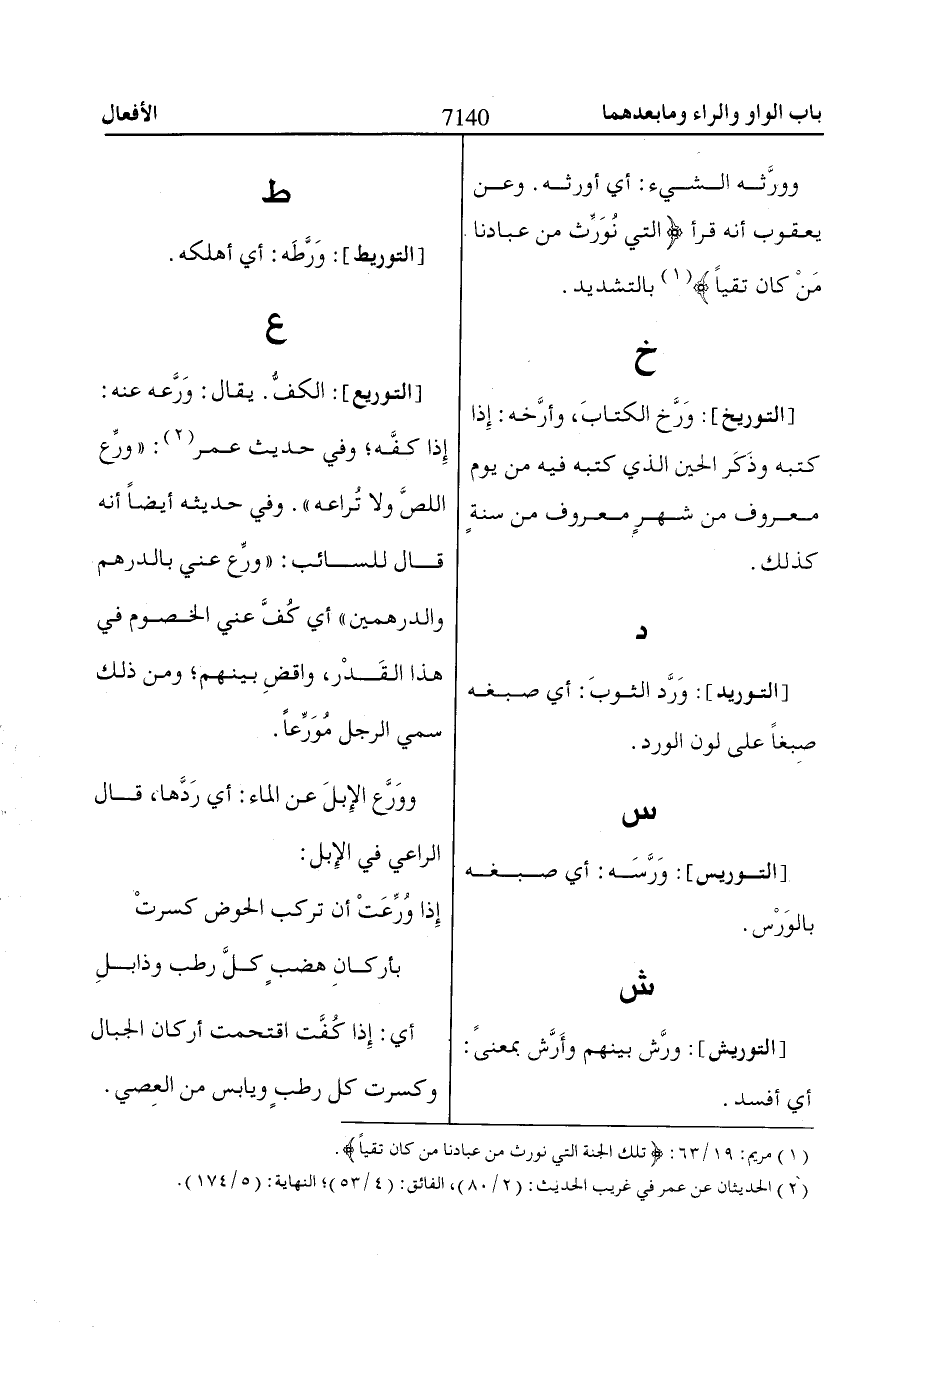 باب الواو والراء ومابعدهما
7140
الأفعال
وورَّثه الشيء: أي أورثه. وعن
يعقوب أنه قرأ ﴿التي نُوَرِّث من عبادنا
مَنْ كان تقياً﴾(١) بالتشديد.
خ
[التوريخ]: وَرَّخ الكتابَ، وأرَّخه: إذا
كتبه وذَكَر الحين الذي كتبه فيه من يوم
معروف من شهرٍ معروف من سنةٍ
كذلك.
د
[التوريد]: وَرَّد الثوبَ: أي صبغه
صِبغاً على لون الورد.
س
[التوريس]: وَرَّسَه: أي صبغه
بالوَرْس.
ش
[التوريش]: ورَّش بينهم وأَرَّش بمعنىً:
أي أفسد.
ط
[التوريط]: وَرَّطَه: أي أهلكه.
ع
[التوريع]: الكفُّ. يقال: وَرَّعه عنه:
إذا كفَّه؛ وفي حديث عمر(٢): «ورِّع
اللصَّ ولا تُراعه». وفي حديثه أيضاً أنه
قال للسائب: «ورِّع عني بالدرهم
والدرهمين» أي كُفَّ عني الخصوم في
هذا القَدْر، واقضِ بينهم؛ ومن ذلك
سمي الرجل مُوَرِّعاً.
وورَّع الإبلَ عن الماء: أي رَدَّها، قال
الراعي في الإبل:
إذا وُرِّعَتْ أن تركب الحوض كسرتْ
بأركانِ هضبٍ كلَّ رطب وذابلِ
أي: إذا كُفَّت اقتحمت أركان الجبال
وكسرت كل رطبٍ ويابس من العصي.
(١) مريم: ١٩/ ٦٣: ﴿تلك الجنة التي نورث من عبادنا من كان تقياً﴾.
(٢) الحديثان عن عمر في غريب الحديث: (٢/ ٨٠)، الفائق: (٤/ ٥٣)؛ النهاية: (٥/ ١٧٤).